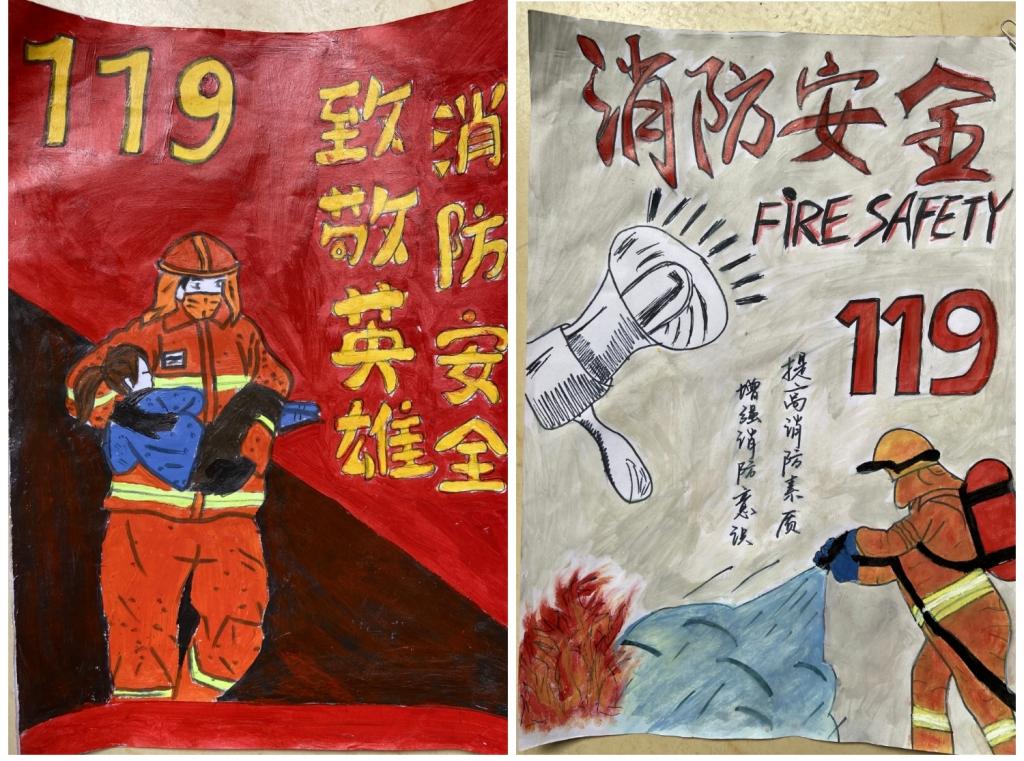 119
消防安全
致敬英雄
消防安全
FIRE SAFETY
119
提高消防素质
增强消防意识